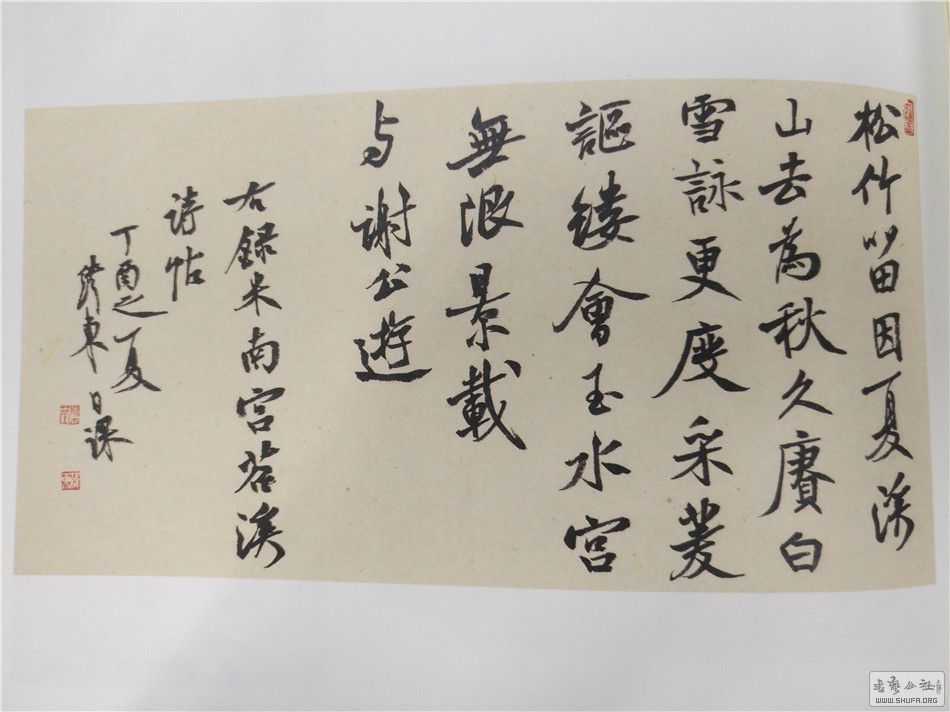 松竹留因夏溪
山去為秋久賡白
雪詠更度采菱
謳縷會玉水宮
無限景載
与謝公遊
右録米南宮苕溪
詩帖
丁酉之夏
東日課
書藝公社
WWW.SHUFA.ORG